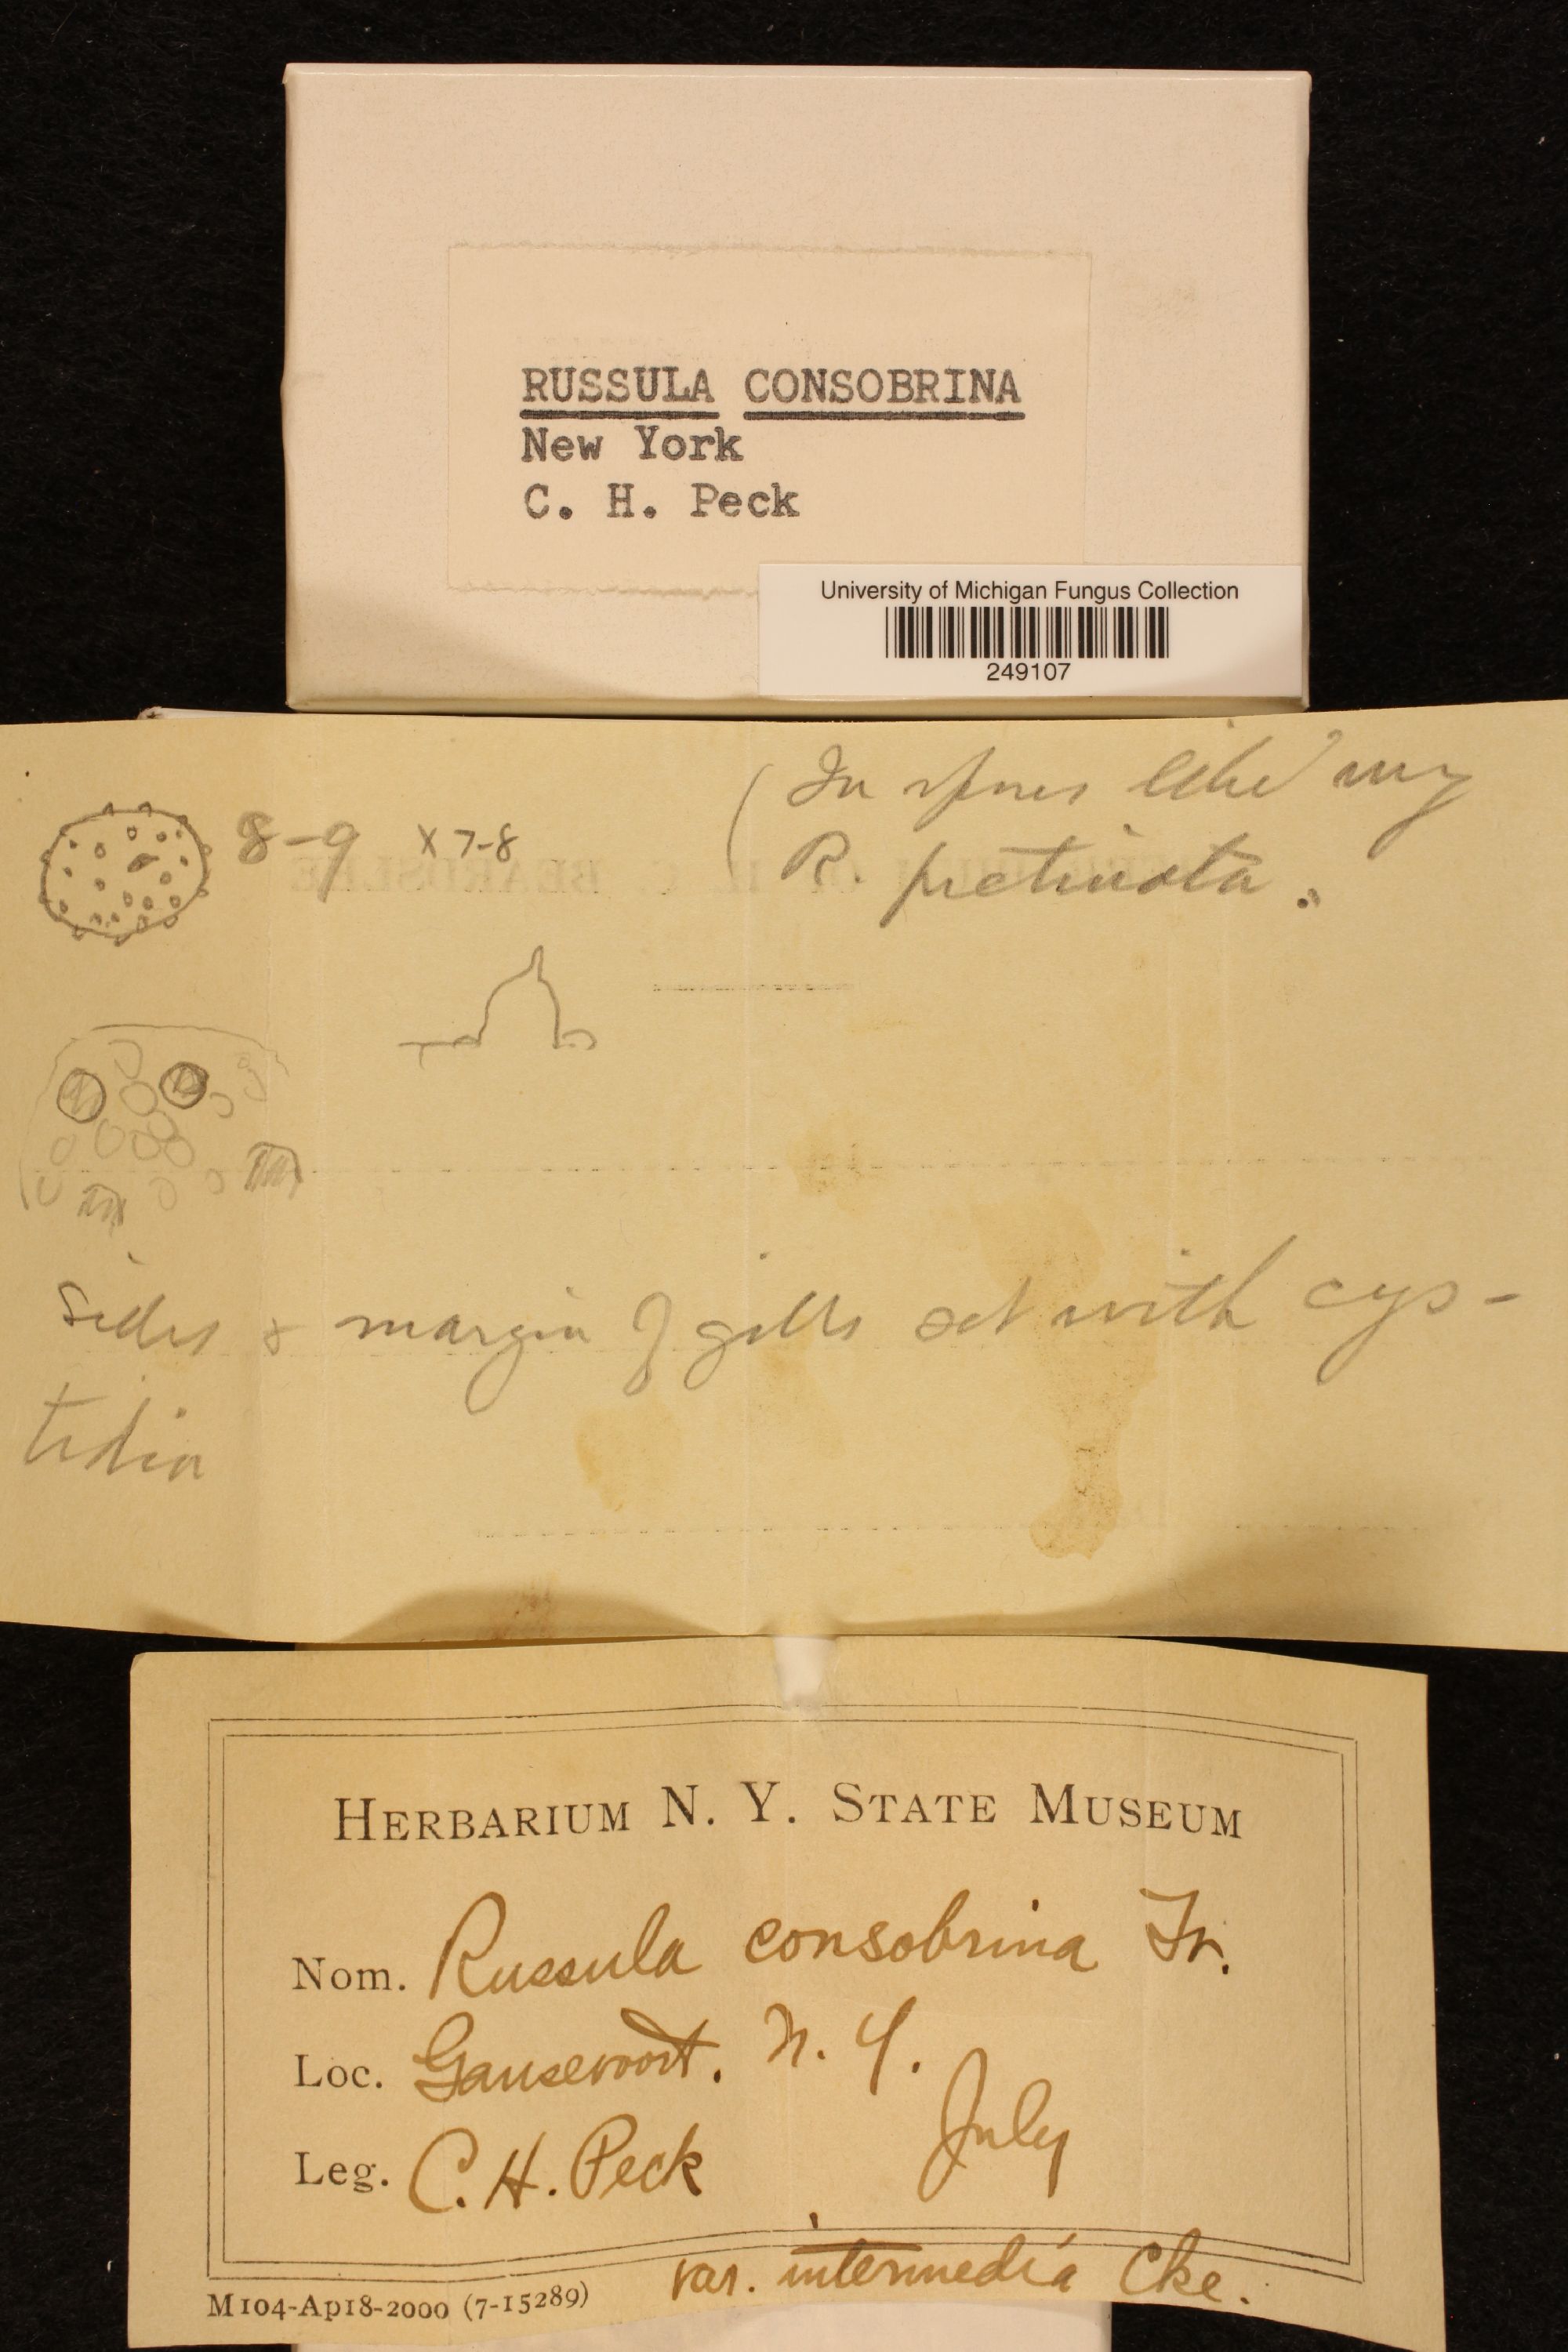 RUSSULA CONSOBRINA
New York
C. H. Peck
University of Michigan Fungus Collection
249107
8-9 x 7-8
(In spores like my
R. pectinata.
sides & margin of gills set with cys-
tidia
HERBARIUM N. Y. STATE MUSEUM
Nom. Russula consobrina Fr.
Loc. Gansevoort. N. Y.
July
Leg. C. H. Peck
var. intermedia Cke.
M104-Ap18-2000 (7-15289)